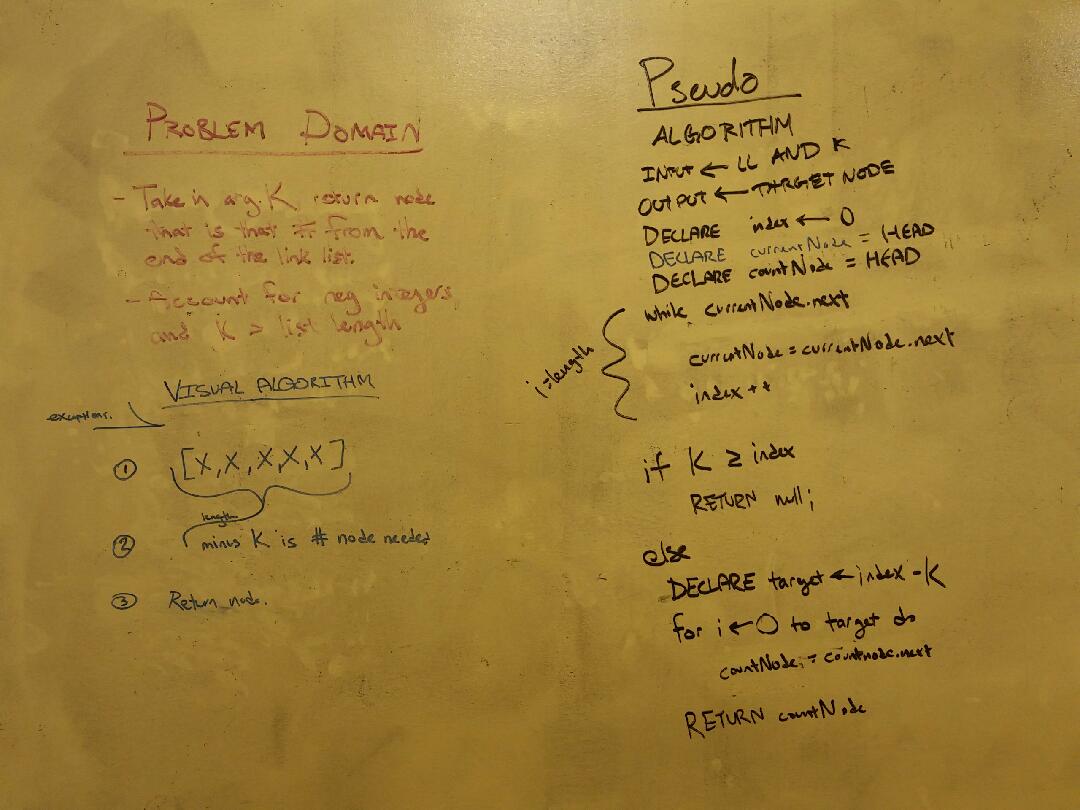 PROBLEM DOMAIN
- Take in arg. K return node
that is that # from the
end of the link list.
- Account for neg integers,
and K > list length
VISUAL ALGORITHM
exceptions.
① [X,X,X,X,X]
length
② minus K is # node needed
③ Return node.
Pseudo
ALGORITHM
INPUT ← LL AND K
OUTPUT ← TARGET NODE
DECLARE index ← 0
DECLARE currentNode = HEAD
DECLARE countNode = HEAD
while currentNode.next
currentNode = currentNode.next
index ++
i=length
if K ≥ index
RETURN null;
else
DECLARE target ← index - K
for i ← 0 to target do
countNode = countnode.next
RETURN countNode